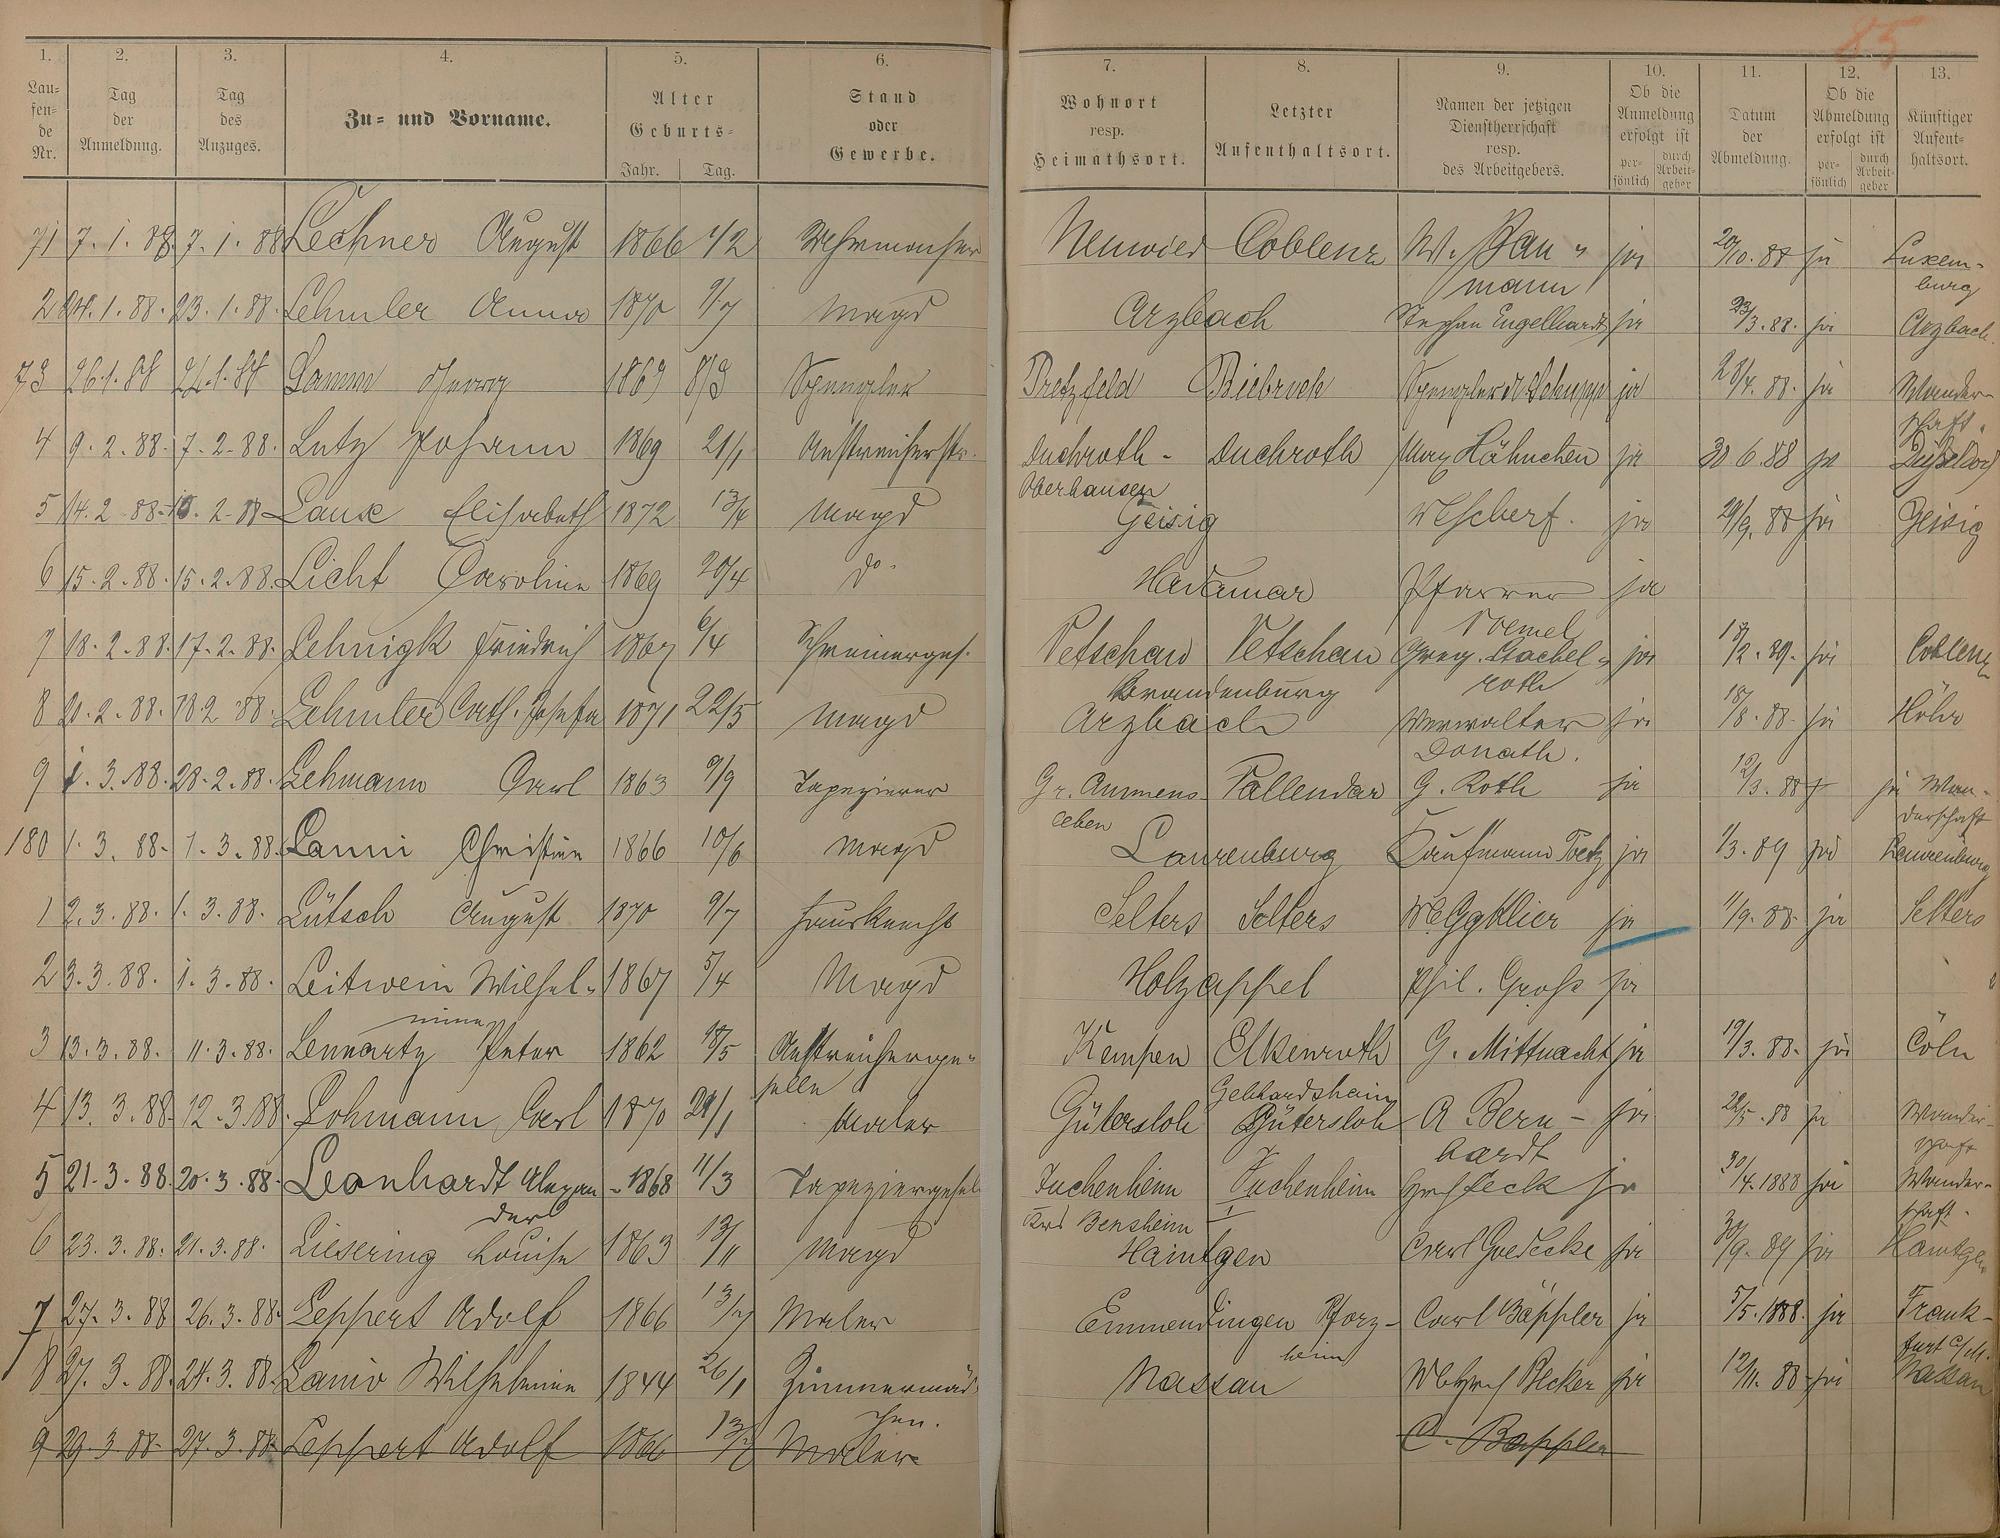 85
1. 2. 3. 4. 5. 6. 7. 8. 9. 10. 11. 12. 13.
Laufende Nr. Tag der Anmeldung. Tag des Anzuges. Zu= und Vorname. Alter Geburts= Jahr. Tag. Stand oder Gewerbe. Wohnort resp. Heimathsort. Letzter Aufenthaltsort. Namen der jetzigen Dienstherrschaft resp. des Arbeitgebers. Ob die Anmeldung erfolgt ist persönlich durch Arbeitgeber Datum der Abmeldung. Ob die Abmeldung erfolgt ist persönlich durch Arbeitgeber Künftiger Aufenthaltsort.
71 7. 1. 88. 7. 1. 88 Lechner August 1866 Neuwied Coblenz W. Bau= ja 20/10. 88 ja Luxem=
mann burg
2 24. 1. 88. 23. 1. 88. Lehmler Anna 1870 9/7 Magd Arzbach Stephan Engelhardt ja 23/3. 88. ja Arzbach.
73 26. 1. 88 Lamm 1869 8/9 Spengler Pretzfeld Biebrich Spengler ja 28/4. 88. ja Wander=
schaft.
4 9. 2. 88. 7. 2. 88. Lutz Johann 1869 21/1 Duchroth= Duchroth Max Hähnchen ja 30 6. 88 ja Düsseldorf
Oberhausen
5 14. 2 88. 2. 88 Laux Elisabeth 1872 13/4 Magd Geisig Scherf. ja 29/9. 88 ja Geisig
6 15. 2. 88. 15. 2. 88. Licht Caroline 1869 20/4 do. Hadamar Pfarrer ja
Voemel
7 18. 2. 88. 17. 2. 88. Lehnigk Friedrich 1867 6/4 Schreinerges. Vetschau Vetschau Greg. Stachel= ja 18/2. 89. ja Coblenz
Brandenburg roth
8 21. 2. 88. 18 2 88. Lehmler Cath. Josefa 1871 22/5 Magd Arzbach Verwalter ja 18/8. 88. ja Höhr
Donath.
9 1. 3. 88. 28. 2. 88. Lehmann Carl 1863 9/9 Tapezierer Gr. Ammens= Vallendar G. Roth ja 12/3. 88 ja Wan=
leben derschaft
180 1. 3. 88. 1. 3. 88. Lanni Christine 1866 10/6 Magd Laurenburg Kaufmann ja 1/3. 89 ja Laurenburg
1 2. 3. 88. 1. 3. 88. Lütsch August 1870 9/7 Hausknecht Selters Selters ja 1/9. 88. ja Selters
2 3. 3. 88. 1. 3. 88. Leitwein Wilhel= 1867 5/4 Magd Holzappel Phil. Groß ja
mine
3 13. 3. 88. 11. 3. 88. Lennartz Peter 1862 18/5 Anstreicherge= Kempen Elkenroth G. Mittnacht ja 19/3. 88. ja Cöln
selle Gebhardshain
4 13. 3. 88. 12. 3. 88. Lohmann Carl 1870 21/1 Maler Gütersloh Gütersloh A. Bern= ja 22/5. 88 ja Wander=
hardt schaft
5 21. 3. 88. 20. 3. 88. Leonhardt Alexan= 1868 11/3 Tapeziergesel Juchenheim Juchenheim ja 30/4. 1888 ja Wander=
der Bensheim schaft.
6 23. 3. 88. 21. 3. 88. Liesering Louise 1863 13/11 Magd Haintgen Carl Goedecke ja 30/9. 89 ja Haintgen
7 27. 3. 88 26. 3. 88. Leppert Adolf 1866 13/7 Maler Emmendingen Pforz= Carl Bäppler ja 5/5. 1888. ja Frank=
heim furt a/M.
8 27. 3. 88. 24. 3. 88. Wilhelmine 1844 26/1 Zimmermäd= Nassau Becker ja 12/11. 88 ja Nassau
chen.
9 29. 3 88. 27. 3. 88. Leppert Adolf 1866 13/7 Maler C. Bäppler